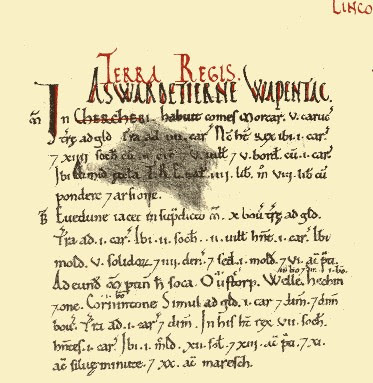 LINCO
TERRA REGIS.
ASWARDETIERNE WAPENTAC.
ꝳ In CHERCHEBI. habuit comes Morcar. v. caruc
t̃ræ ad gld̃. T̃ra ad. iiii. car̃. Nc̃ ht̃. rex ibi. i. car̃
⁊ xiiii. soch̃ cũ. car̃. ⁊ v. uill̃ ⁊ v. bord̃. cũ. i. car̃.
Ibi ꝑ̃ta. T.R.E. uał. lib̃. m̊ viii. lib̃ cũ
pondere ⁊ arsione.
B̃ Euedune iacet in sup̃dicto ꝳ. x bou t̃ræ ad gld̃.
T̃ra ad. i. car̃. Ibi. ii. soch̃. ii. uilłi hñt. i. car̃. Ibi
mold̃. v. solidoꝝ ⁊ iiii. den̄. ⁊ sed̃. i. mold̃. ⁊ vi. ac̃ p̃ti.
Ad eund̃ ꝳ ptin̄ h̃ soca. Ouſtorp. Welle. hechin
⁊ one. Corninctone Simul ad gld̃. i. car̃ ⁊ dim̄. ⁊ dim̄
bou. T̃ra ad. i. car̃ ⁊ dim̄. In his ht̃ rex vii. soch̃.
hñtes. i. car̃. Ibi. i. mld̃. xii. soł. ⁊ xiii. ac̃ p̃ti. ⁊ xi.
ac̃ siluę minutę. ⁊ xx. ac̃ maresch̃.